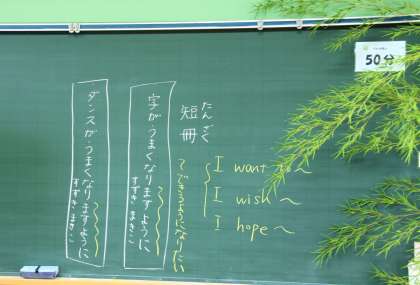 50分
たんざく
短冊
字がうまくなりますように
すずき まきこ
ダンスがうまくなりますように
すずき まきこ
I want to ~
I wish ~
I hope ~